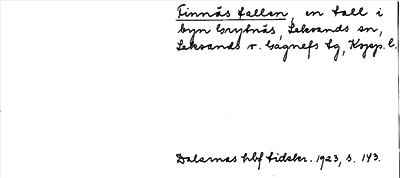 Finnäs tallen, en tall i
byn Grytnäs, Leksands sn,
Leksands o. Gagnefs tg, Kopp. l.
Dalarnas hbf tidskr. 1923, s. 143.